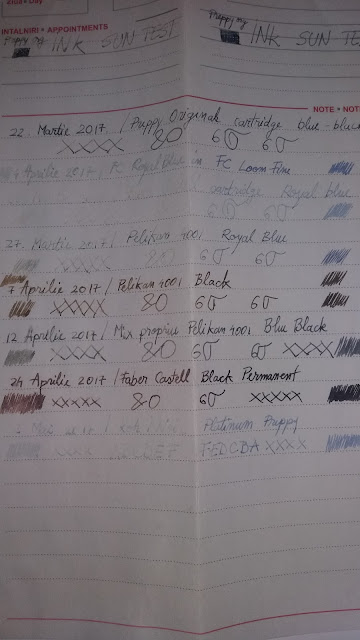 Ziua • Day
INTALNIRI • APPOINTMENTS
Preppy my
INK SUN TEST
Preppy my
INK SUN TE
NOTE • NOT
22. Martie 2017. / Preppy Original cartridge blue-black
XXXX 80 60 60
Aprilie 2017 / FC Royal Blue in FC Loom Fine
cartridge Royal blue
60 60
27. Martie 2017 / Pelikan 4001 Royal Blue
XXXX 80 60 60
7 Aprilie 2017 / Pelikan 4001 Black
XXXXX 80 60 60
12 Aprilie 2017 / Mix propriu Pelikan 4001 Blue Black
XXXXX 80 60 60 XXXX
24 Aprilie 2017 / Faber Castell Black Permanent
XXXXX 80 60 XXXXX
Platinum Preppy
FEDCBA XXXX